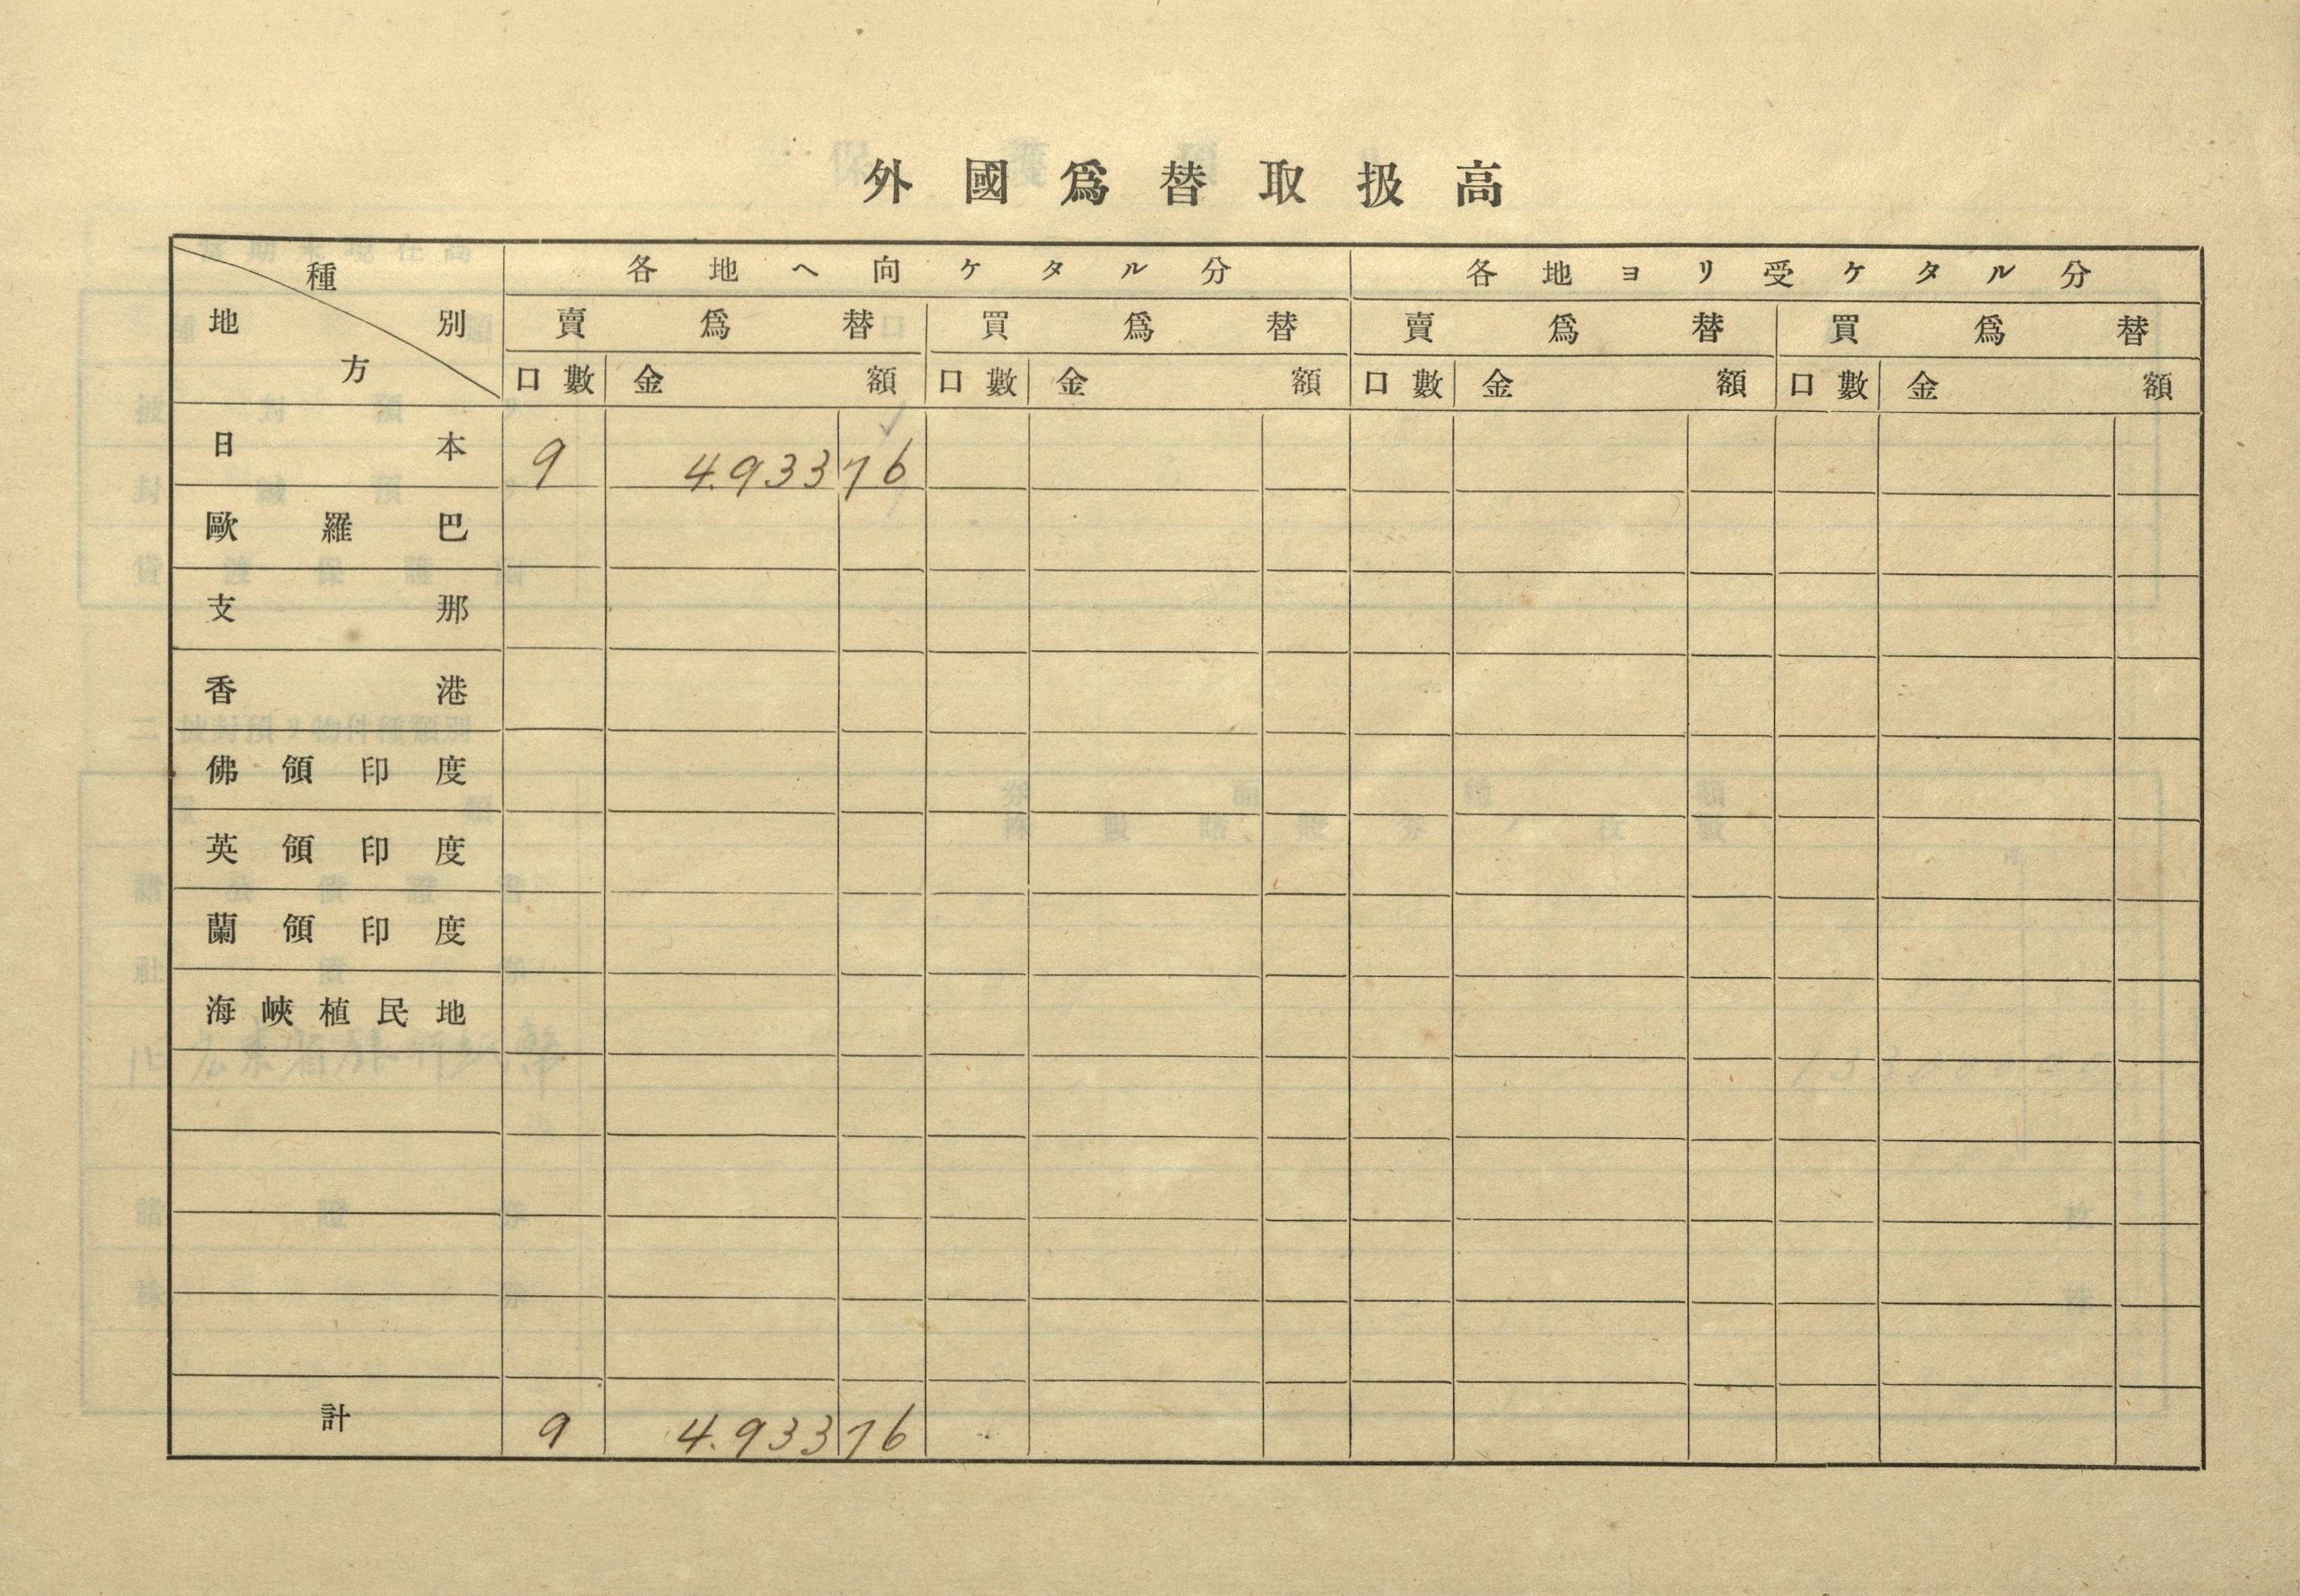 外國爲替取扱高
種別 地方 各地ヘ向ケタル分 各地ヨリ受ケタル分
賣爲替 買爲替 賣爲替 買爲替
口數 金額 口數 金額 口數 金額 口數 金額
日本 9 4.933 76
歐羅巴
支那
香港
佛領印度
英領印度
蘭領印度
海峽植民地
計 9 4.933 76